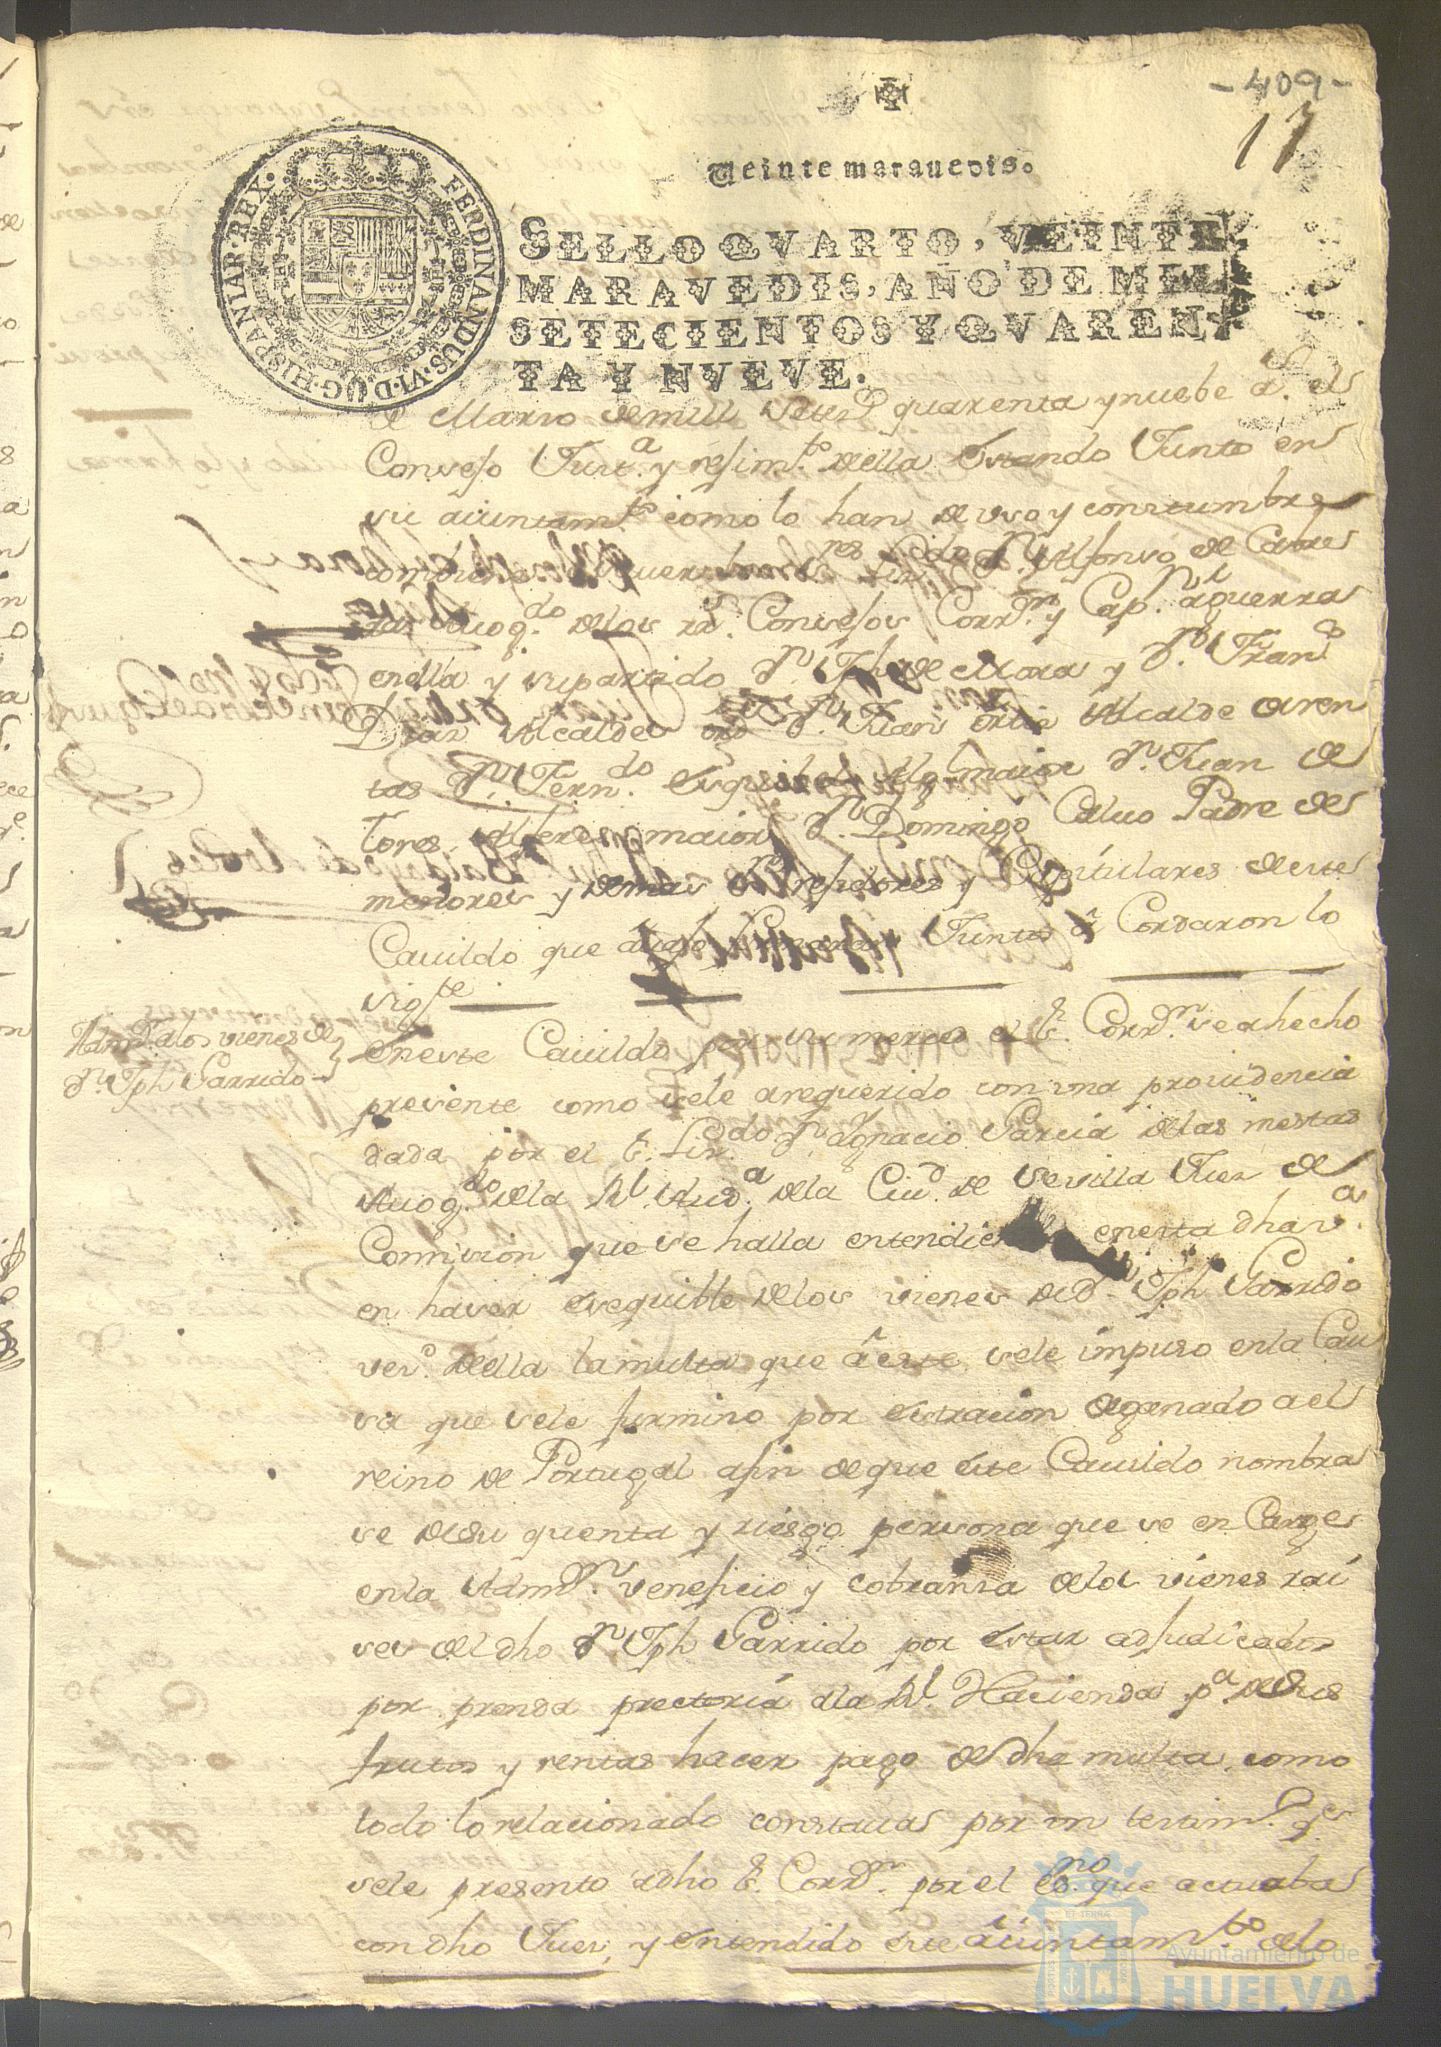 -409-
17
Veinte maravedis.
SELLO QVARTO, VEINTE
MARAVEDIS, AÑO DE MIL
SETECIENTOS Y QVAREN
TA Y NVEVE.
FERDINANDUS·VI·D·G·HISPANIAR·REX·
de Marzo de mill setez.s quarenta y nuebe a.s el
Consejo Just.a y rejim.to della estando Junto en
su aiuntam.to como lo han de uso y constumbre
res Liz.do D.n Alfonso de
Auog.do delos r.s Consejos Corr.or y Cap.n a guerra
en ella y su partido D.n Jph de Mora y D.n Fran.co
Diaz Alcaldes ord.s D.n Juan ortiz Alcalde
D.n Fern.do maior D.n Juan de
Alferez maior D.n Domingo Caluo Padre de
menores y demas rejidores y Capitulares deste
Cauildo que Juntos a Cordaron lo
sig.te
Adm.on a los vienes de
D.n Jph Garrido
eneste Cauildo por su merced el s.r Corr.or se a hecho
presente como sele a requerido con una prouidencia
dada por el s.r Liz.do D.n Ignacio Garcia delas mestas
Auog.do dela R.l Aud.a dela Ciu.d de Sevilla Juez de
Comision que se halla entendie enesta dha v.a
en haver exequible delos vienes de D.n Jph Garrido
vez.o della la multa que a este sele impuso en la Cau
sa que sele furmino por estracion de ganado a el
reino de Portugal afin de que este Cauildo nombra
se desu quenta y riesgo persona que se en Cargue
en la Adm.on veneficio y cobranza delos vienes rai
ses del dho D.n Jph Garrido por estar adjudicados
por prenda pretoria a la R.l Hacienda p.a de sus
frutos y rentas hacer pago de dha multa como
todo lo relacionado constaua por un testim.o q.e
sele presento a dho s.r Corr.or por el es.no que actuaba
con dho Juez, y entendido este aiuntam.to delo
Ayuntamiento de
HUELVA